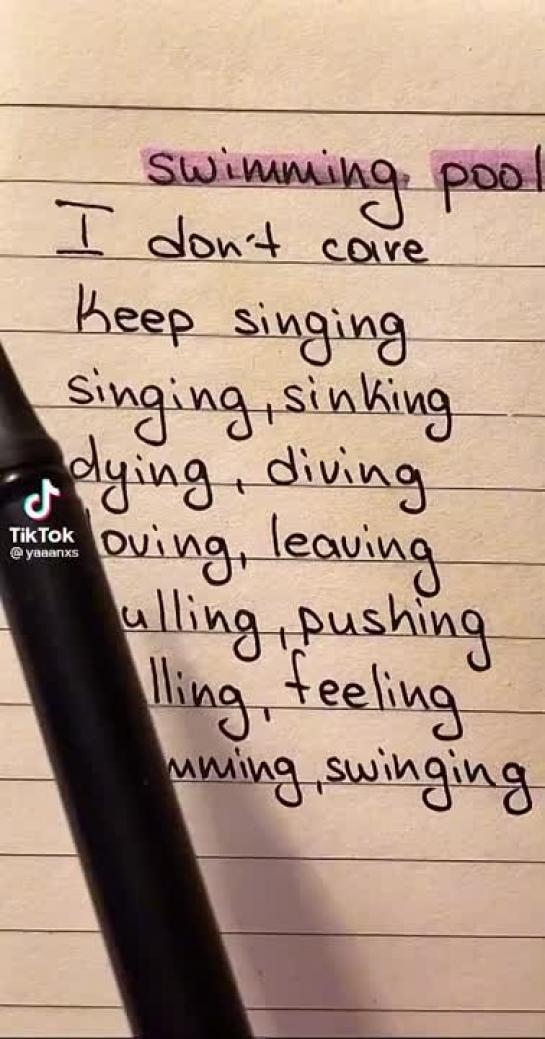 swimming pool
I don't care
Keep singing
singing, sinking
dying, diving
oving, leaving
ulling, pushing
lling, feeling
mming, swinging
TikTok
@yaaanxs